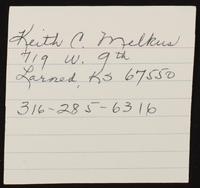 Keith C. Melkus
719 W. 9th
Larned, KS 67550
316-285-6316